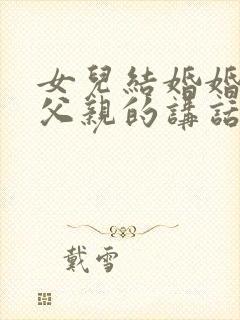 女兒結婚婚
父親的講話
戴雪